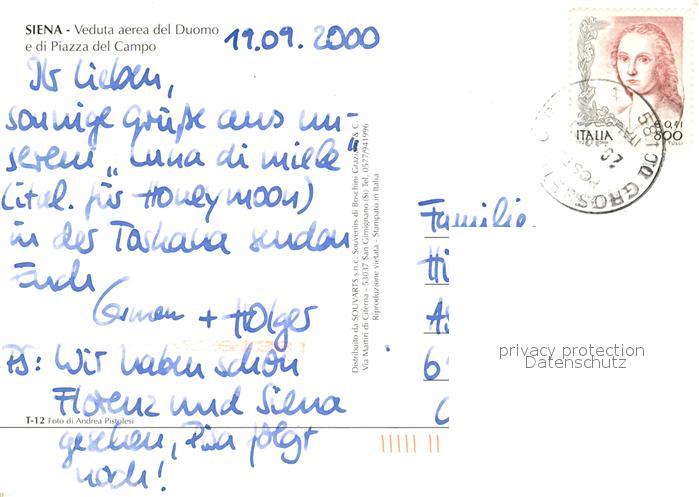 SIENA - Veduta aerea del Duomo
e di Piazza del Campo
19.09.2000
Ihr Lieben,
sonnige Grüße aus un-
serem „Luna di miele"
(ital. für Honeymoon)
in der Toskana senden
Euch
+ Holger
PS: Wir haben schon
Florenz und Siena
gesehen, Pisa folgt
noch!
T-12 Foto di Andrea Pistolesi
Distribuito da SOUVARTS s.n.c. Souvenirs di Boschini Graziano & C.
Via Martiri di Citerna - 53037 San Gimignano (Si) Tel. 0577/941996
Riproduzione vietata - Stampato in Italia
€ 0,41
ITALIA 800
Familie
privacy protection
Datenschutz